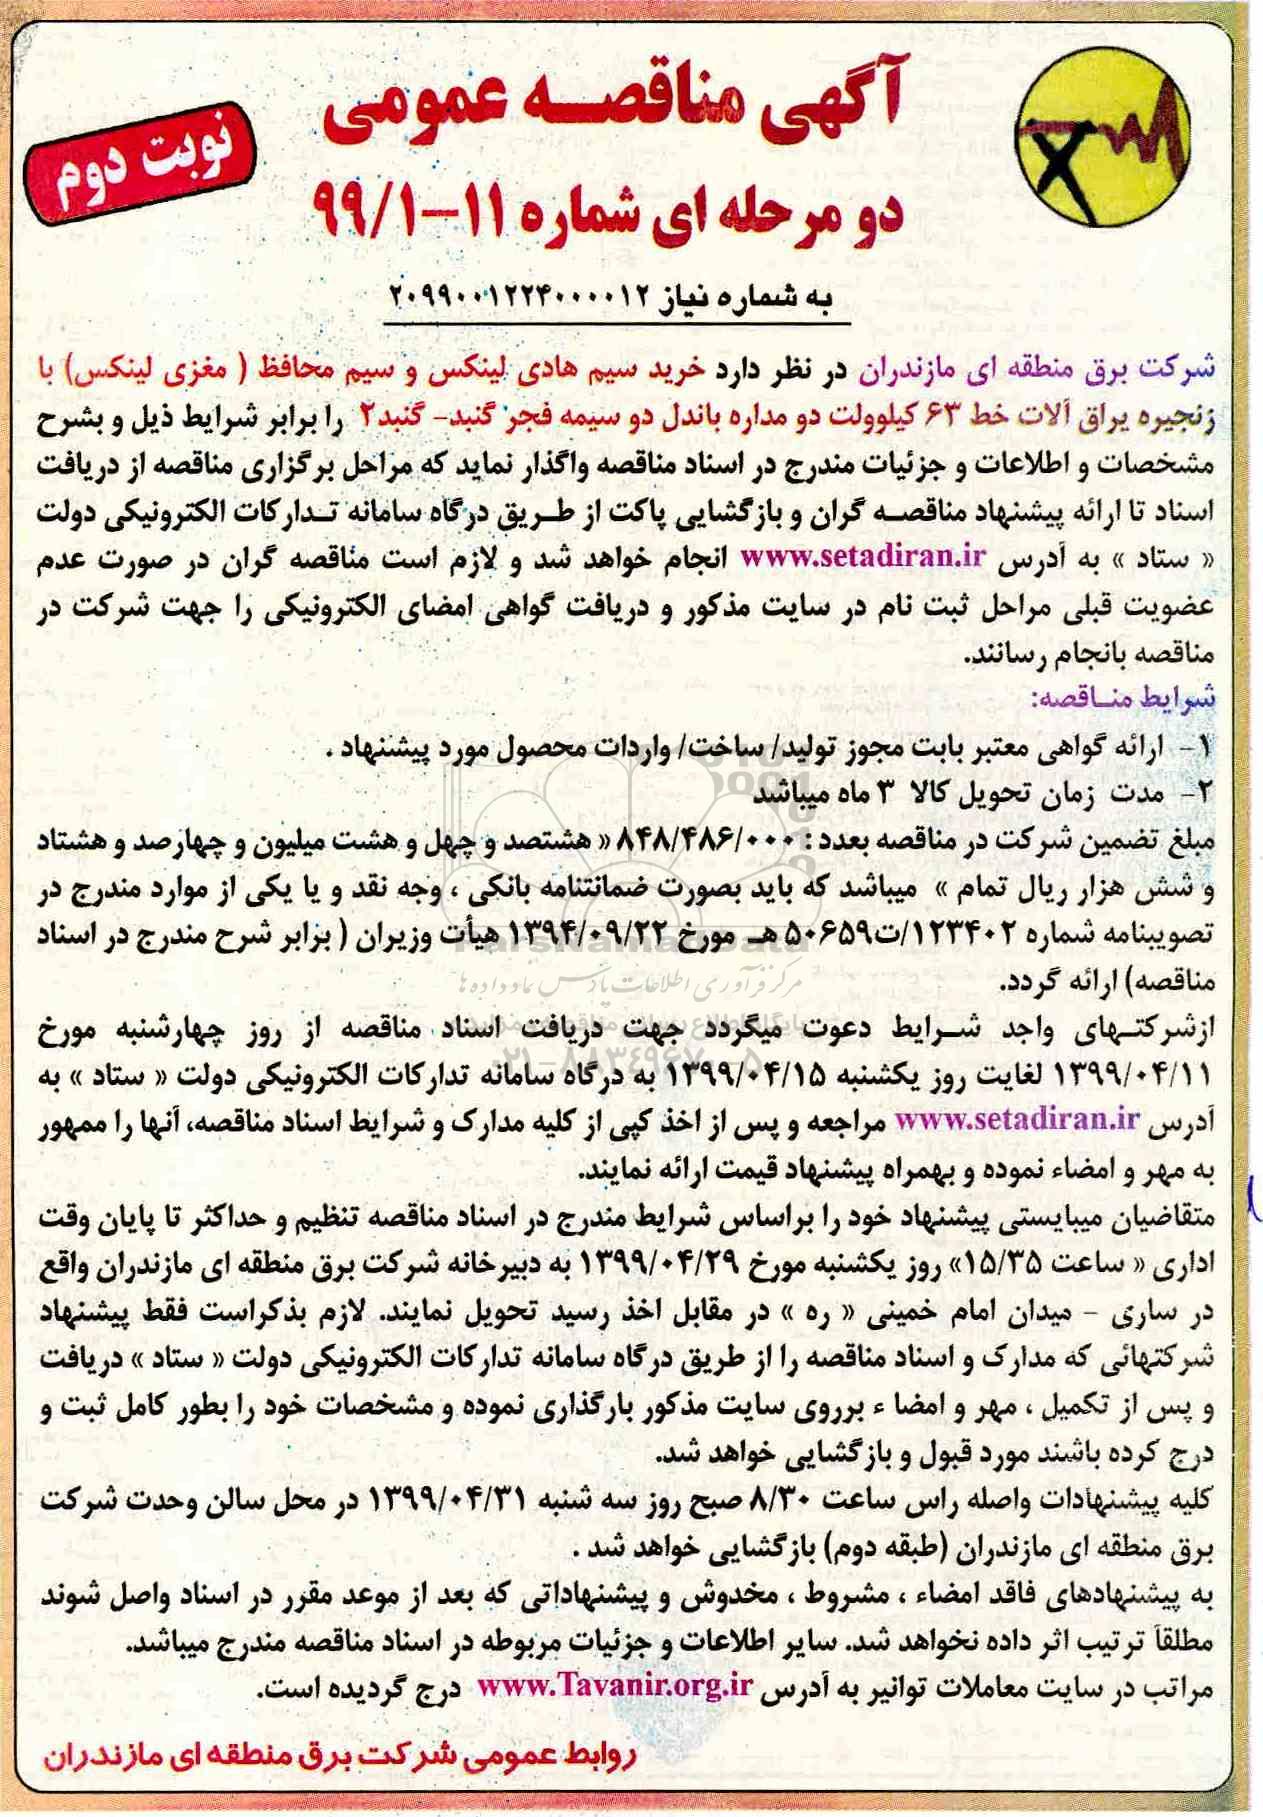 آگهی مناقصه عمومی
نوبت دوم
دو مرحله ای شماره ۱۱-۹۹/۱
به شماره نیاز ۲۰۹۹۰۰۱۲۲۴۰۰۰۰۱۲
شرکت برق منطقه ای مازندران در نظر دارد خرید سیم هادی لینکس و سیم محافظ ( مغزی لینکس) با
زنجیره یراق آلات خط ۶۳ کیلوولت دو مداره باندل دو سیمه فجر گنبد- گنبد۲ را برابر شرایط ذیل و بشرح
مشخصات و اطلاعات و جزئیات مندرج در اسناد مناقصه واگذار نماید که مراحل برگزاری مناقصه از دریافت
اسناد تا ارائه پیشنهاد مناقصه گران و بازگشایی پاکت از طریق درگاه سامانه تدارکات الکترونیکی دولت
« ستاد » به آدرس www.setadiran.ir انجام خواهد شد و لازم است مناقصه گران در صورت عدم
عضویت قبلی مراحل ثبت نام در سایت مذکور و دریافت گواهی امضای الکترونیکی را جهت شرکت در
مناقصه بانجام رسانند.
شرایط مناقصه:
۱- ارائه گواهی معتبر بابت مجوز تولید/ ساخت/ واردات محصول مورد پیشنهاد .
۲- مدت زمان تحویل کالا ۳ ماه میباشد
مبلغ تضمین شرکت در مناقصه بعدد : ۸۴۸/۴۸۶/۰۰۰ « هشتصد و چهل و هشت میلیون و چهارصد و هشتاد
و شش هزار ریال تمام » میباشد که باید بصورت ضمانتنامه بانکی ، وجه نقد و یا یکی از موارد مندرج در
تصویبنامه شماره ۱۲۳۴۰۲/ت۵۰۶۵۹ هـ مورخ ۱۳۹۴/۰۹/۲۲ هیأت وزیران ( برابر شرح مندرج در اسناد
مناقصه) ارائه گردد.
مرکز فرآوری اطلاعات پارس نماد داده ها
ازشرکتهای واجد شرایط دعوت میگردد جهت دریافت اسناد مناقصه از روز چهارشنبه مورخ
۰۲۱-۸۸۳۴۹۶۷۰-۵
۱۳۹۹/۰۴/۱۱ لغایت روز یکشنبه ۱۳۹۹/۰۴/۱۵ به درگاه سامانه تدارکات الکترونیکی دولت « ستاد » به
آدرس www.setadiran.ir مراجعه و پس از اخذ کپی از کلیه مدارک و شرایط اسناد مناقصه، آنها را ممهور
به مهر و امضاء نموده و بهمراه پیشنهاد قیمت ارائه نمایند.
متقاضیان میبایستی پیشنهاد خود را براساس شرایط مندرج در اسناد مناقصه تنظیم و حداکثر تا پایان وقت
اداری « ساعت ۱۵/۳۵» روز یکشنبه مورخ ۱۳۹۹/۰۴/۲۹ به دبیرخانه شرکت برق منطقه ای مازندران واقع
در ساری - میدان امام خمینی « ره » در مقابل اخذ رسید تحویل نمایند. لازم بذکراست فقط پیشنهاد
شرکتهائی که مدارک و اسناد مناقصه را از طریق درگاه سامانه تدارکات الکترونیکی دولت « ستاد » دریافت
و پس از تکمیل ، مهر و امضا ء برروی سایت مذکور بارگذاری نموده و مشخصات خود را بطور کامل ثبت و
درج کرده باشند مورد قبول و بازگشایی خواهد شد.
کلیه پیشنهادات واصله راس ساعت ۸/۳۰ صبح روز سه شنبه ۱۳۹۹/۰۴/۳۱ در محل سالن وحدت شرکت
برق منطقه ای مازندران (طبقه دوم) بازگشایی خواهد شد .
به پیشنهادهای فاقد امضاء ، مشروط ، مخدوش و پیشنهاداتی که بعد از موعد مقرر در اسناد واصل شوند
مطلقاً ترتیب اثر داده نخواهد شد. سایر اطلاعات و جزئیات مربوطه در اسناد مناقصه مندرج میباشد.
مراتب در سایت معاملات توانیر به آدرس www.Tavanir.org.ir درج گردیده است.
روابط عمومی شرکت برق منطقه ای مازندران